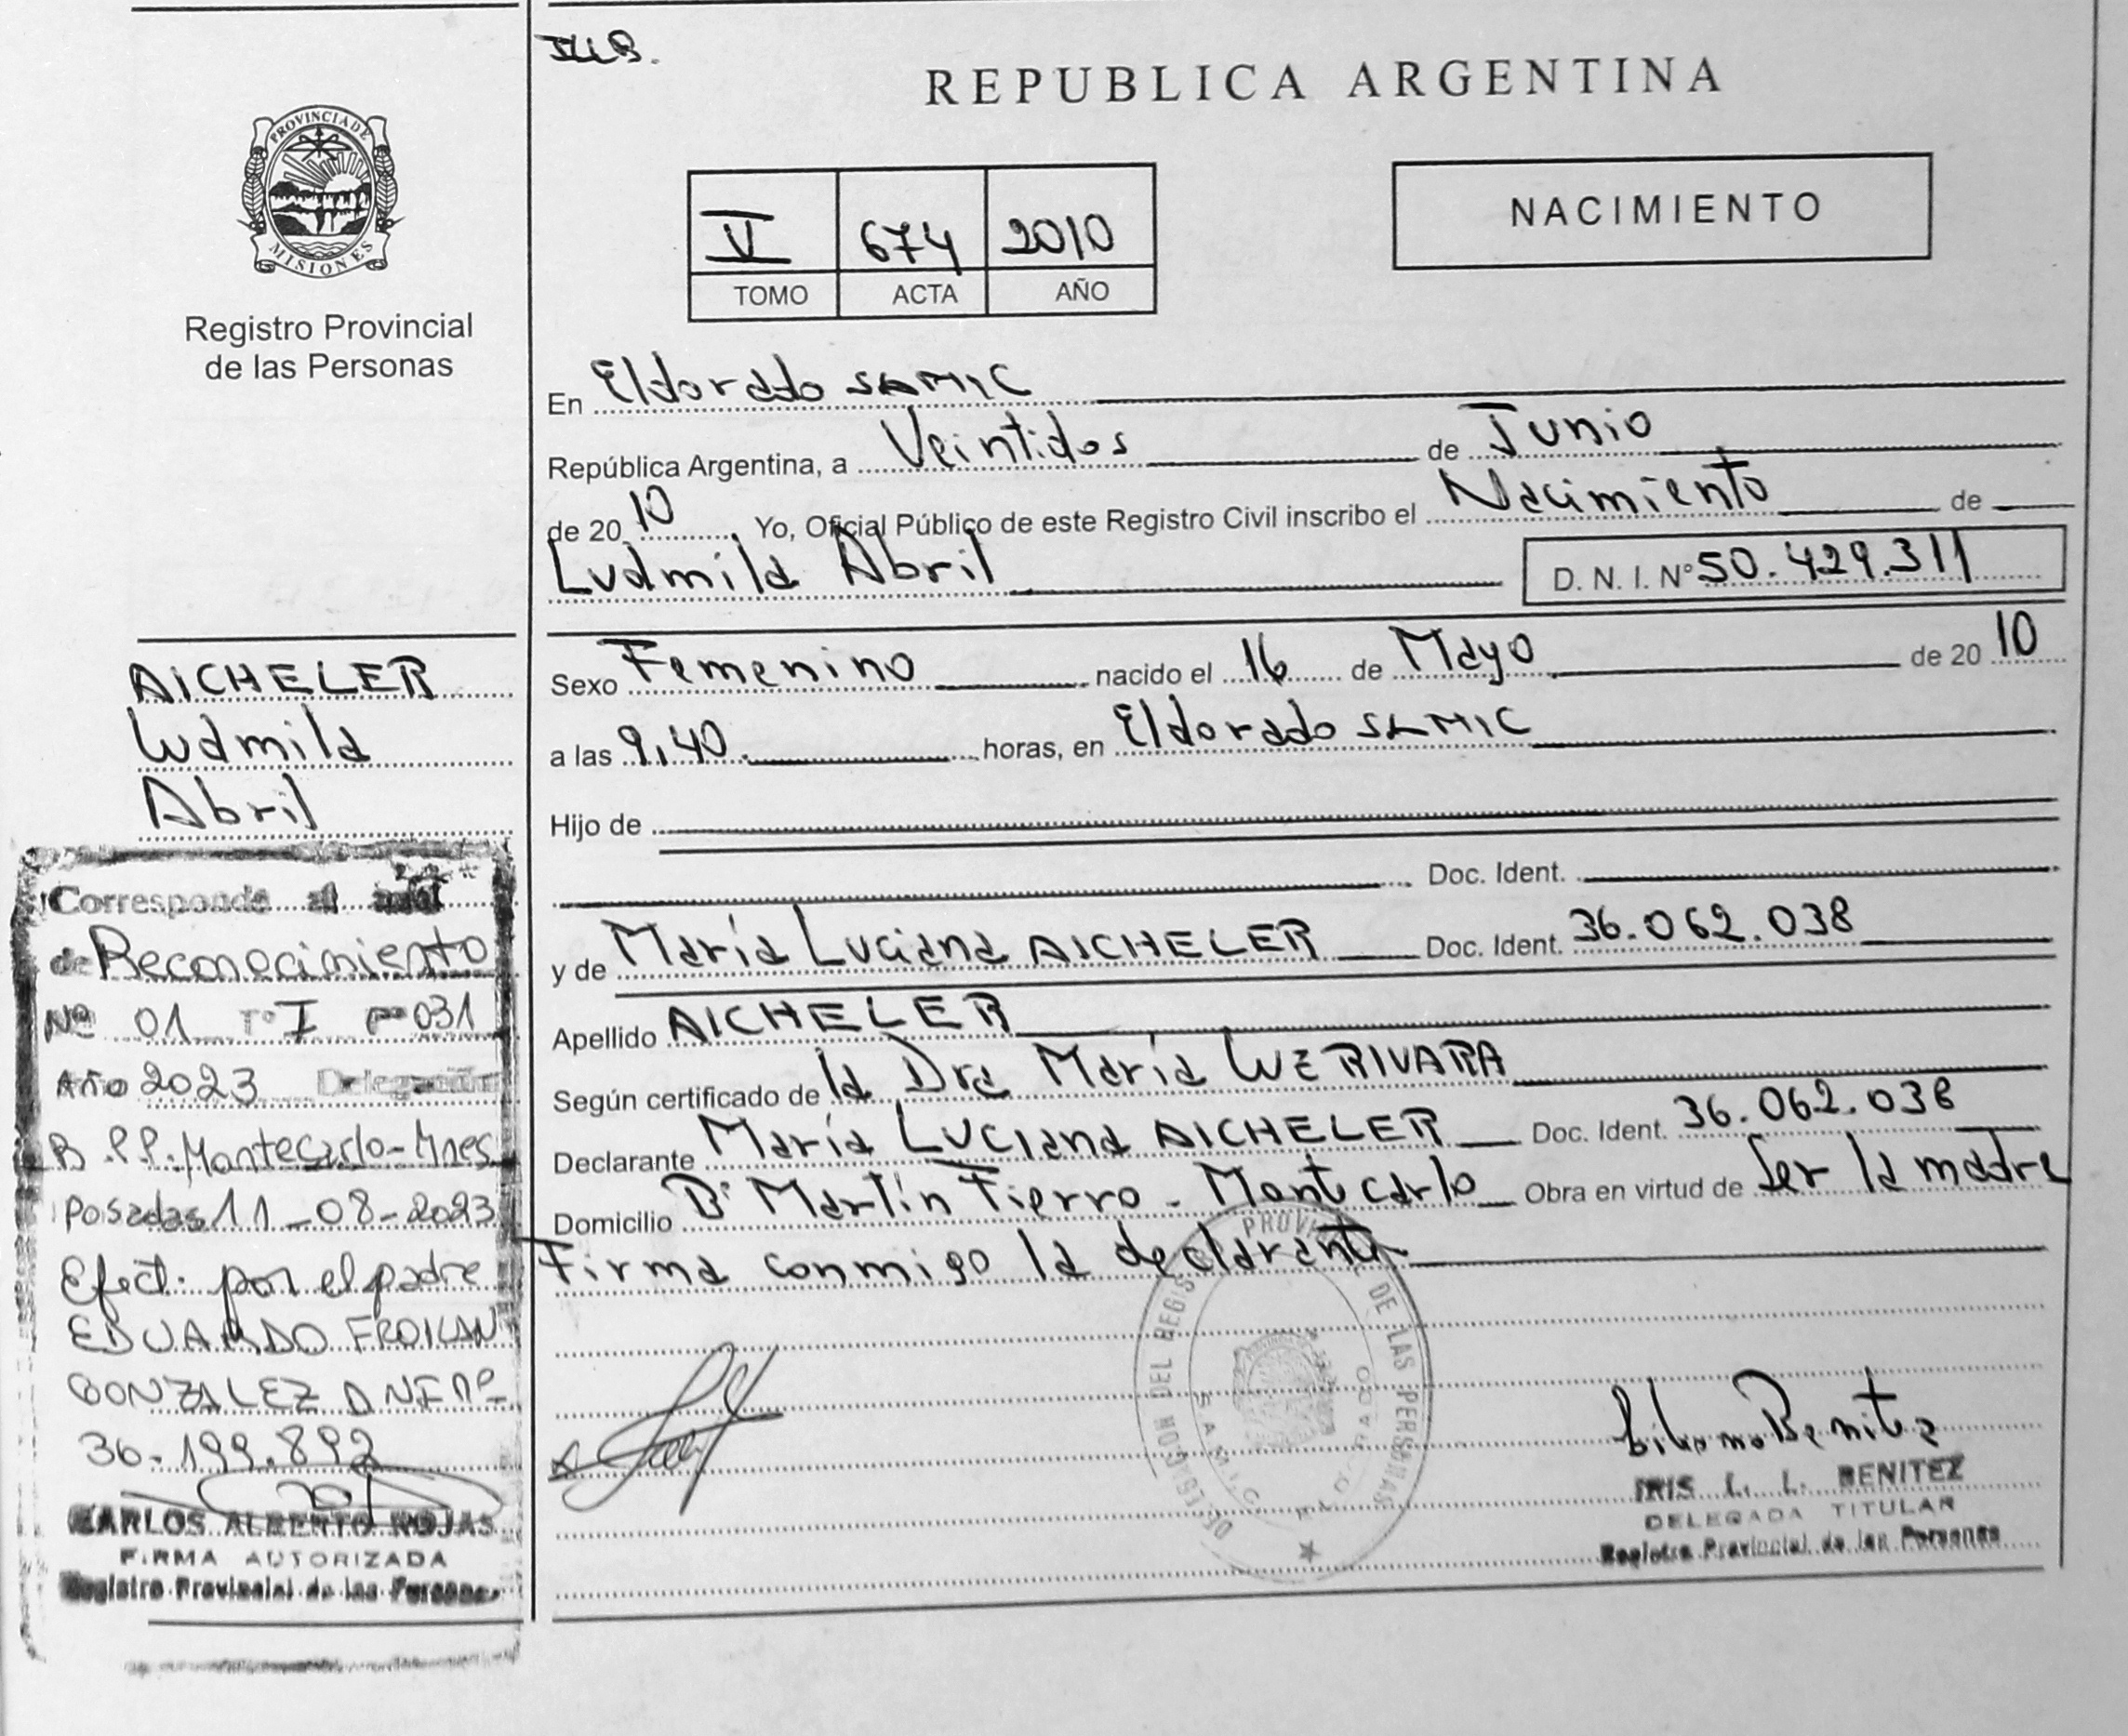 REPUBLICA ARGENTINA
PROVINCIA DE
MISIONES
Registro Provincial
de las Personas
V 674 2010
TOMO ACTA AÑO
NACIMIENTO
En Eldorado SAMIC
República Argentina, a Veintidos de Junio
de 2010, Yo, Oficial Público de este Registro Civil inscribo el Nacimiento de
Ludmila Abril D. N. I. Nº 50.429.311
Sexo Femenino nacido el 16 de Mayo de 2010
a las 9,40 horas, en Eldorado SAMIC
Hijo de
Doc. Ident.
y de María Luciana AICHELER Doc. Ident. 36.062.038
Apellido AICHELER
Según certificado de la Dra María Luz RIVARA
Declarante María Luciana AICHELER Doc. Ident. 36.062.038
Domicilio Bº Martín Fierro - Montecarlo Obra en virtud de Ser la madre
Firma conmigo la declarante
AICHELER
Ludmila
Abril
Corresponde al
de Reconocimiento
Nº 01 Tº I Fº 031
Año 2023 Delegación
R.P.P. Montecarlo-Mnes
Posadas 11-08-2023
Efect. por el padre
EDUARDO FROILAN
GONZALEZ DNI nº
36.199.892
CARLOS ALBERTO ROJAS
FIRMA AUTORIZADA
Registro Provincial de las Personas
DELEGACION DEL REGISTRO PROVINCIAL DE LAS PERSONAS
SAMIC ELDORADO
Benitez
IRIS L. L. BENITEZ
DELEGADA TITULAR
Registro Provincial de las Personas